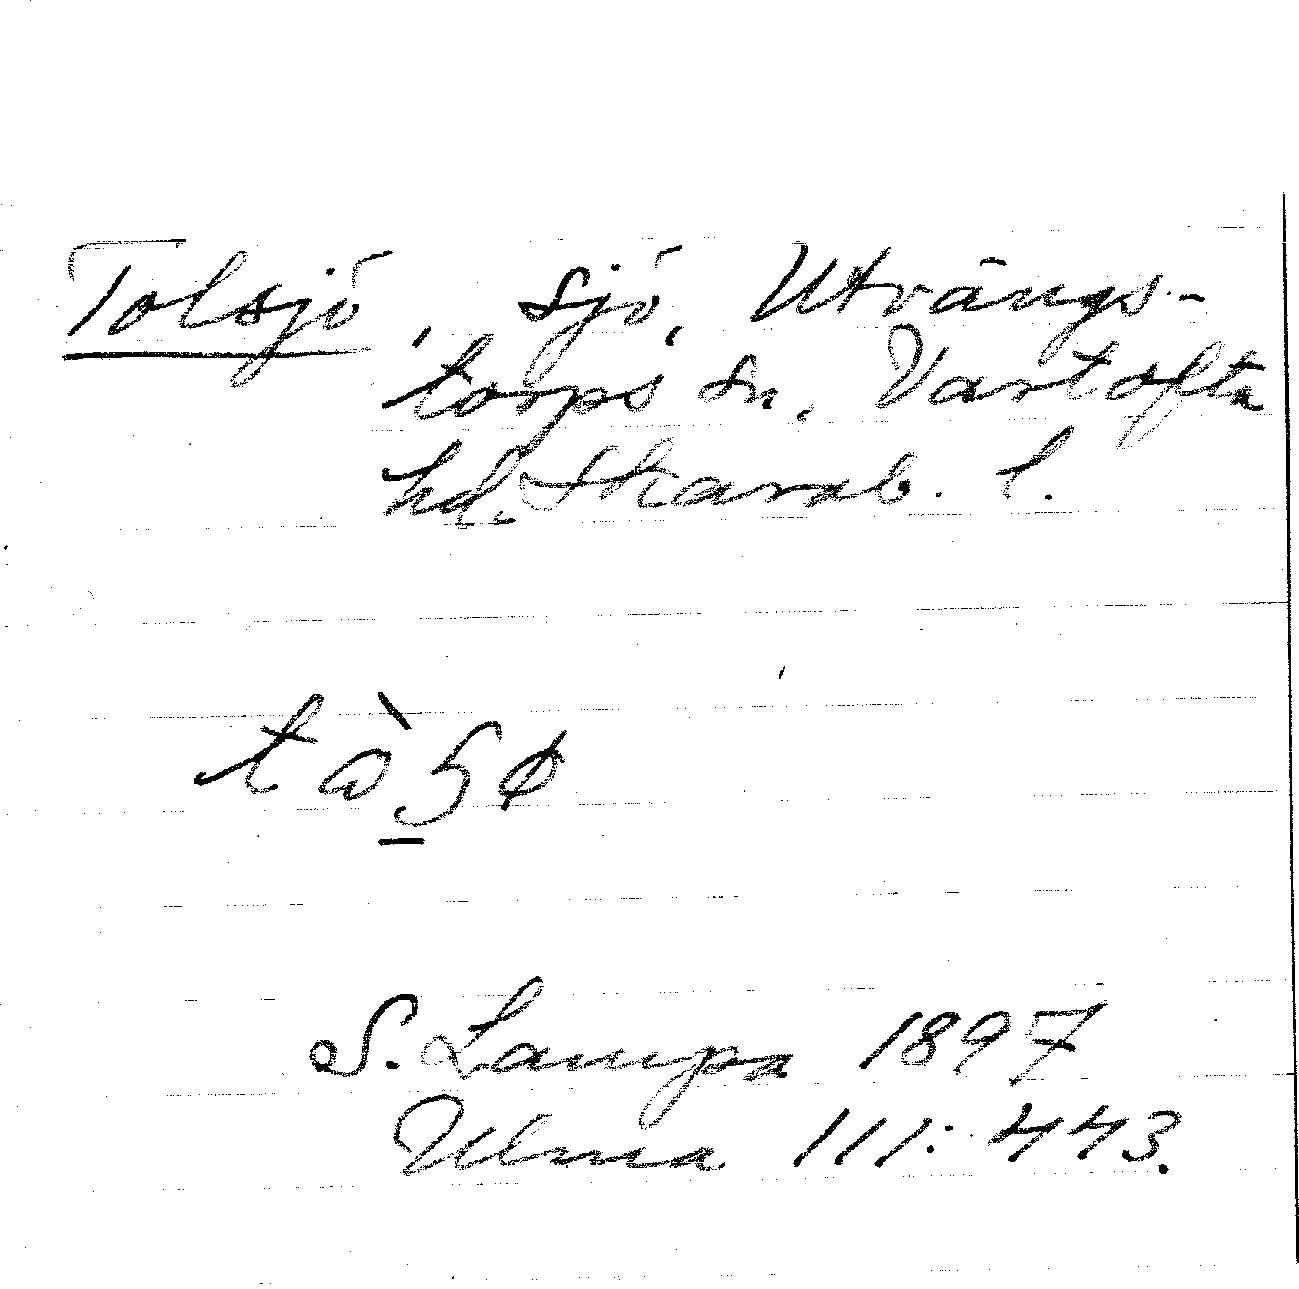 Tolsjö, sjö, Utvängs-
torps sn. Vartofta
hd. Skarab. l.
S. Lampa 1897
Ulma 111:443.